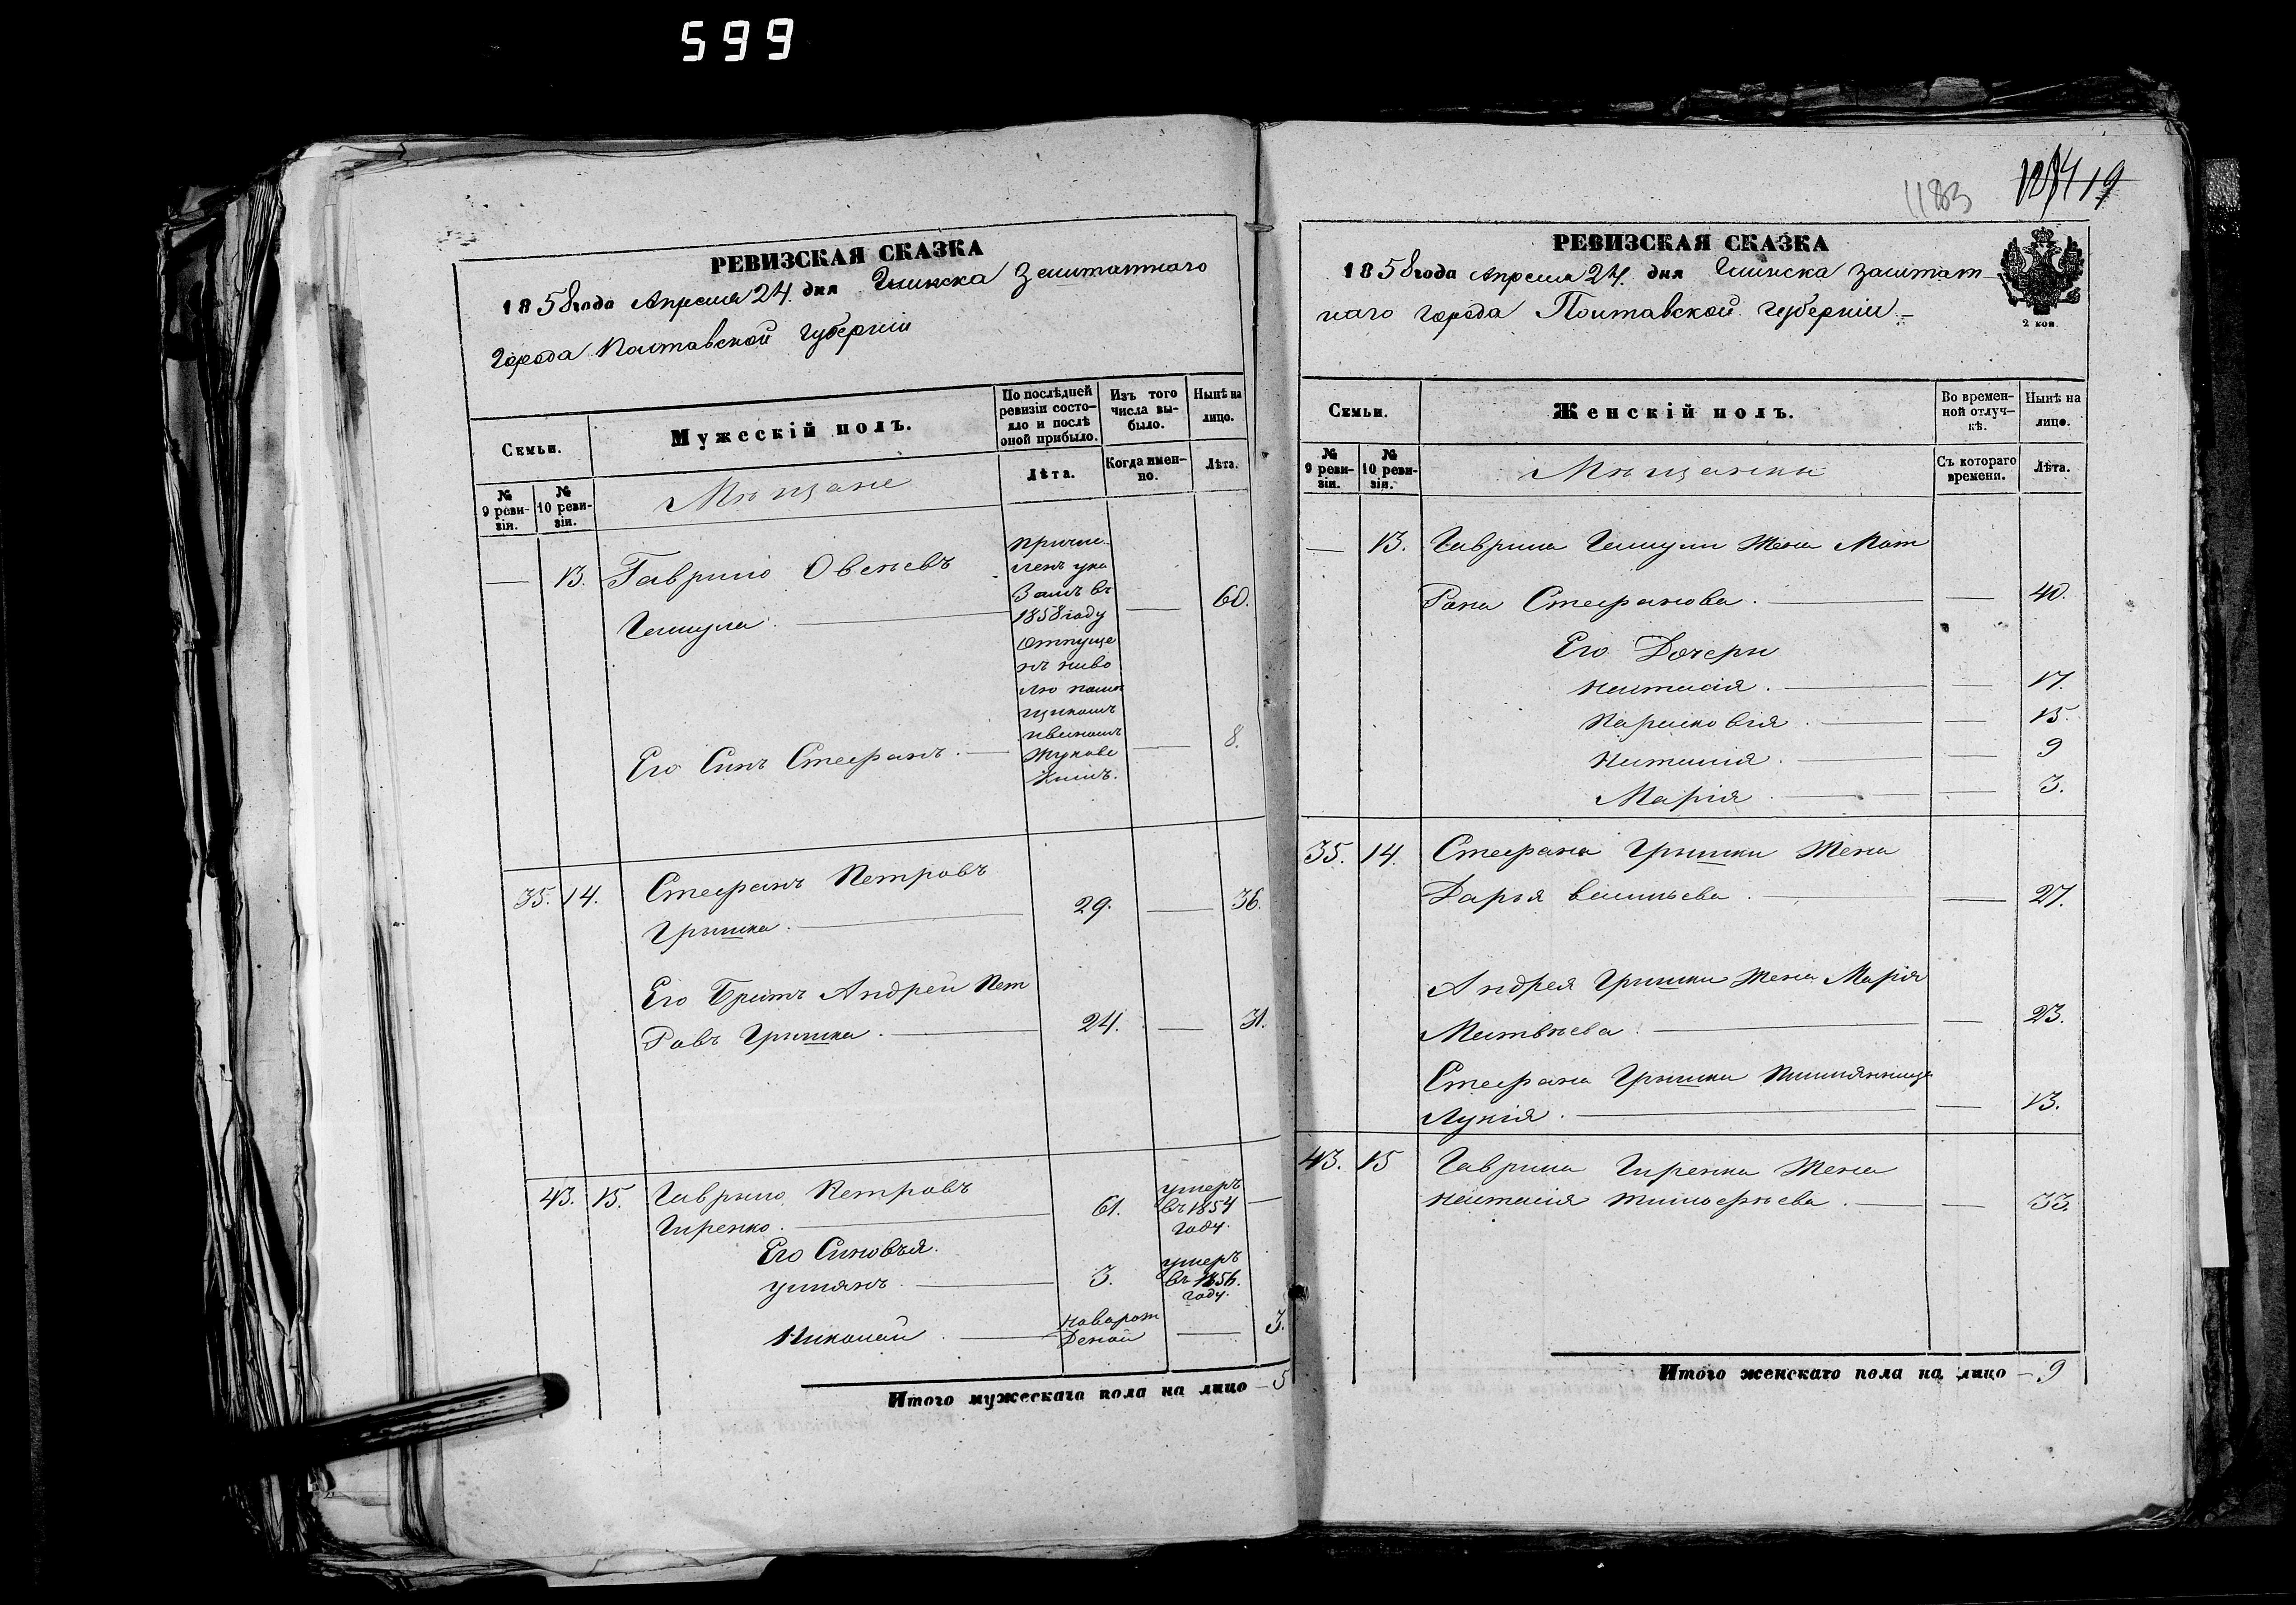 599
РЕВИЗСКАЯ СКАЗКА
1858 года Апреля 24. дня Глинска Заштатнаго
города Полтавской губерніи
Семьи.
Мужескій полъ.
По послѣдней ревизіи состояло и послѣ оной прибыло.
Изъ того числа выбыло.
Нынѣ на лицо.
№ 9 ревизіи.
№ 10 ревизіи.
Мѣщане
Лѣта.
Когда именно.
Лѣта.
— 13. Гаврило Овсѣевъ
60.
причи
ленъ ука
зомъ въ
1858 году
отпуще
нъ на во
лю помѣ
щикомъ
Его Синъ Стефанъ. — 8.
35. 14. Стефанъ Петровъ
Гришка. 29. — 36.
Его Братъ Андрей Пет
ровъ Гришка. 24. — 31.
43. 15. Гаврило Петровъ
Гиренко. 61. умеръ въ 1854 году. —
Его Синовья.
3. умеръ въ 1856. году.
Николай. Новорож
деной — 3.
Итого мужескаго пола на лицо — 5
1183
19
РЕВИЗСКАЯ СКАЗКА
1858 года Апреля 24. дня Глинска заштат
наго города Полтавской губерніи
2 коп.
Семьи.
Женскій полъ.
Во временной отлучкѣ.
Нынѣ на лицо.
№ 9 ревизіи.
№ 10 ревизіи.
Мѣщанки
Съ котораго времени.
Лѣта.
— 13. Гаврила Жена Мот
рона Стефанова. — 40.
Его Дочери
Настасія. — 17.
Парасковія. — 15.
Наталія. — 9
Марія. — 3.
35. 14. Стефана Гришки Жена
Дарья Васильева. — 27.
Андрея Гришки Жена Марія
Матвѣева. — 23.
Стефана Гришки племянница
Лукія. — 13.
43. 15 Гаврила Гиренка Жена
Настасія Тимофѣева. — 33.
Итого женскаго пола на лицо — 9